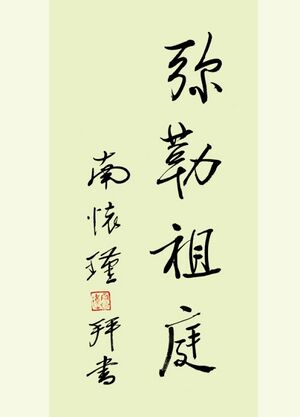 弥勒祖庭
南懷瑾拜書